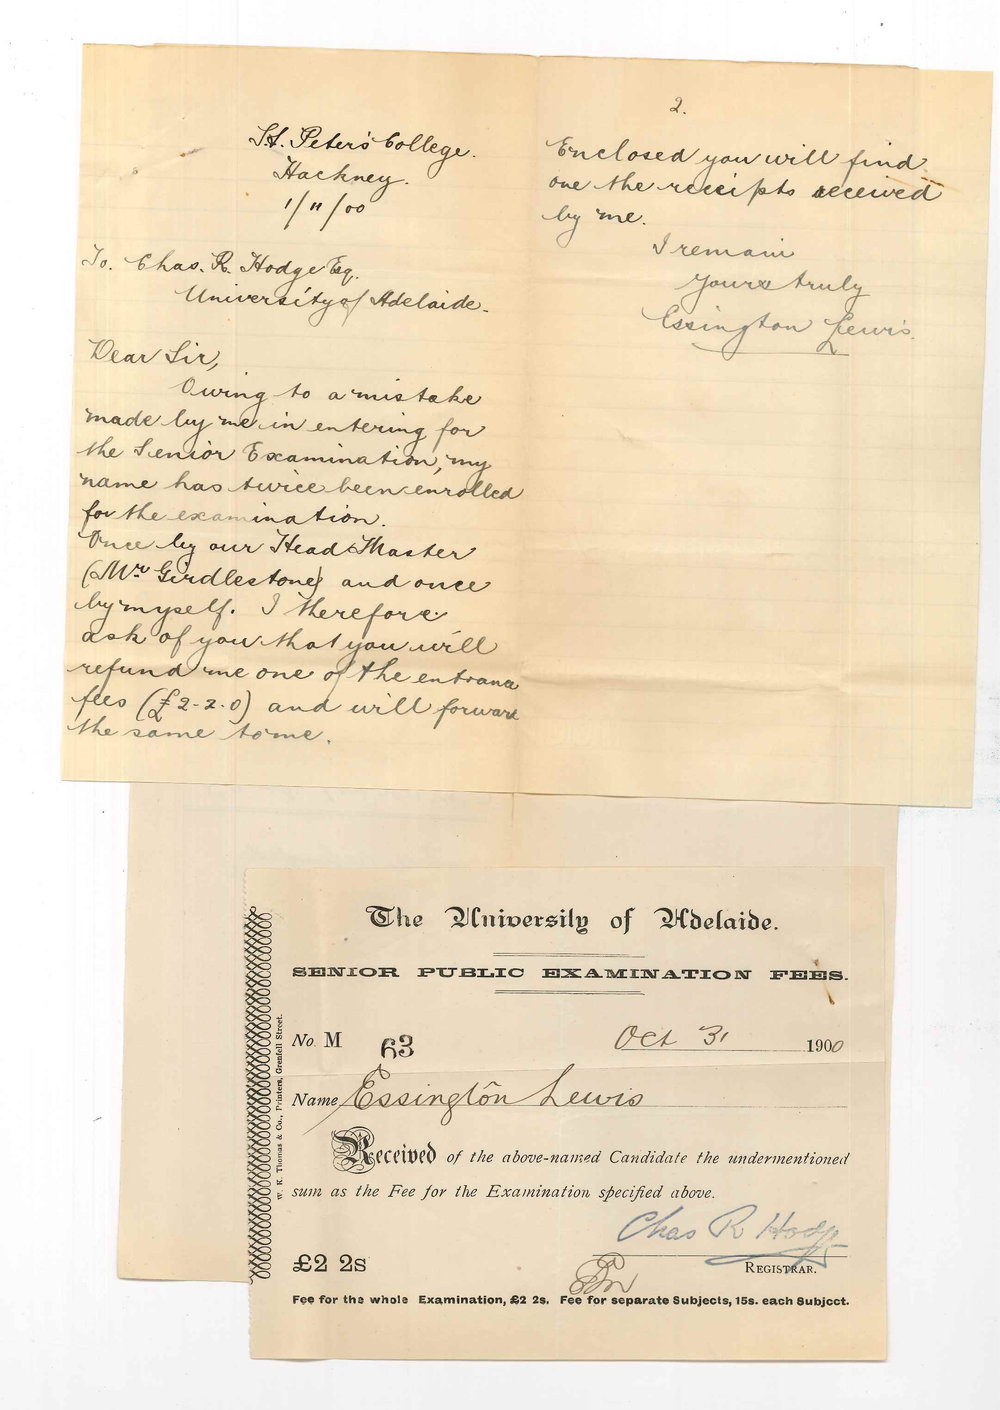 St. Peter's College.
Hackney.
1/11/00
To. Chas. R. Hodge Esq.
University of Adelaide.
Dear Sir,
Owing to a mistake
made by me in entering for
the Senior Examination, my
name has twice been enrolled
for the examination.
Once by our Head Master
(Mr Girdlestone) and once
by myself. I therefore
ask of you that you will
refund me one of the entrance
fees (£2-2-0) and will forward
the same to me.
2.
Enclosed you will find
one the receipts received
by me.
I remain
Yours truly
Essington Lewis.
The University of Adelaide.
SENIOR PUBLIC EXAMINATION FEES.
No. M 63 Oct 31 1900
Name Essington Lewis
Received of the above-named Candidate the undermentioned
sum as the Fee for the Examination specified above.
Chas R Hodge
£2 2s REGISTRAR.
Fee for the whole Examination, £2 2s. Fee for separate Subjects, 15s. each Subject.
W. K. Thomas & Co., Printers, Grenfell Street.